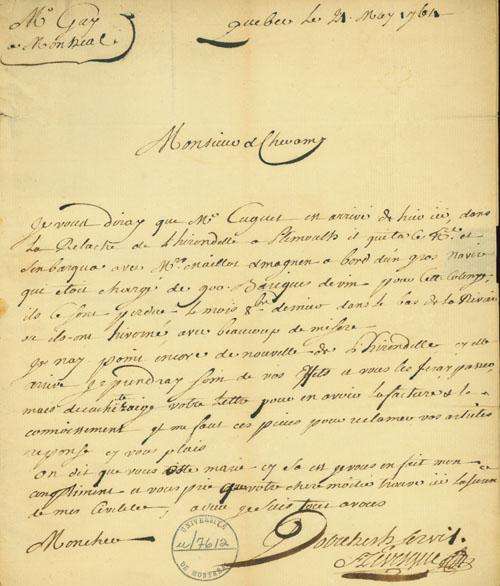 Mr Gay
a Montreal
Quebec le 21 May 1761
Monsieur & Cher amy
Je vous diray que Mr Cuguet en arrivé de hier ici, dans
La Relache de Lhirondelle a Plimouth il quita ce Bt. et
Senbarqua avec Mrs. maillot & magnen a bord dun gros Navire
qui etoit chargé de 900 Bariques de vin pour cette Colonye
ils ce sont perdue le mois 8bre dernier dans le bas de la Riviere
ou ils ont hiverné avec beaucoup de misere
Je nay point encore de nouvelle de Lhirondelle sy elle
arive je prendray soin de vos effets et vous les feray passer
mais decachteraige votre Lettre pour en avoir la facture & le
connoissement et me faut ces pieces pour reclamer vos articles
reponse sy vous plais
on dit que vous este marié sy sa est je vous en fait mon
compliment et vous prie que votre chere moitié trouve ici lassurance
de mes Civilités, adieu je suis tout a vous
Mon cher
Servit.
Levesque
UNIVERSITÉ
u/7612
DE MONTREAL